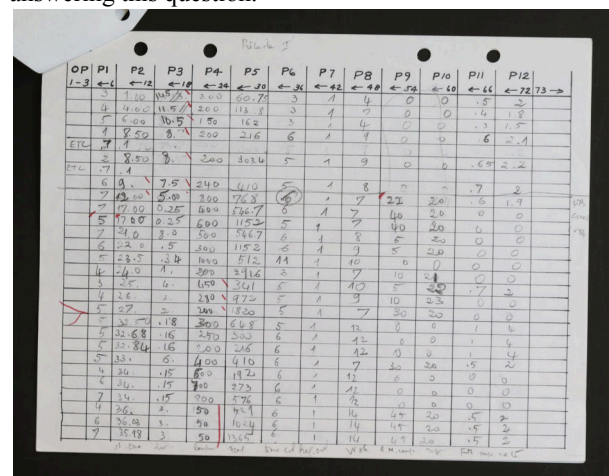 answering this question.
OP P1 P2 P3 P4 P5 P6 P7 P8 P9 P10 P11 P12
1-3 ←6 ←12 ←18 ←24 ←30 ←36 ←42 ←48 ←54 ←60 ←66 ←72 73→
3 1.00 200 60.75 3 1 4 0 0 .5 2
4 4.00 11.5 200 3 1 0 0 .4 1.8
5 6.00 10.5 150 162 3 1 4 0 0 .3 1.5
1 8.50 8. 200 216 6 1 9 0 0 .6 2.1
ETC .1
2 8.50 8. 200 303.4 5 1 9 0 0 .65 2.2
ETC .7 .1
6 9. 7.5 240 410 5 1 8 .7 2
7 5.00 800 768 1 7 22 20 .6 1.9
7 17.00 0.25 400 546.7 6 1 7 40 20 0 0
5 17.00 0.25 600 1152 5 1 7 40 20 0 0
7 21.0 8.0 500 546.7 6 1 8 5 20 0 0
6 22.0 .5 300 1152 6 1 9 5 20 0 0
5 23.5 .34 1000 512 11 1 10 0 0 0 0
4 24.0 1. 200 2916 3 1 7 10 0 0
3 25. 4. 450 341 5 1 10 5 .7 2
4 26. 280 972 5 1 9 10 23 0 0
5 27. 2. 1820 5 1 7 30 20 0 0
5 .18 300 648 5 1 12 0 0 1 4
5 32.68 .16 250 300 6 1 12 0 0 1 4
5 32.84 .16 200 216 6 1 12 0 1 4
5 33. 6. 400 410 6 1 7 30 20 .5 2
4 34. .15 600 192 6 1 12 0 0 0 0
6 34. .15 700 273 6 1 12 0 0 0 0
7 34. .15 800 576 6 1 12 0 0 0 0
4 36. 3. 50 6 1 14 45 20 .5 2
6 36.02 3. 50 1024 6 1 14 45 20 .5 2
7 35.98 3 50 1365 6 1 14 45 20 .5 2